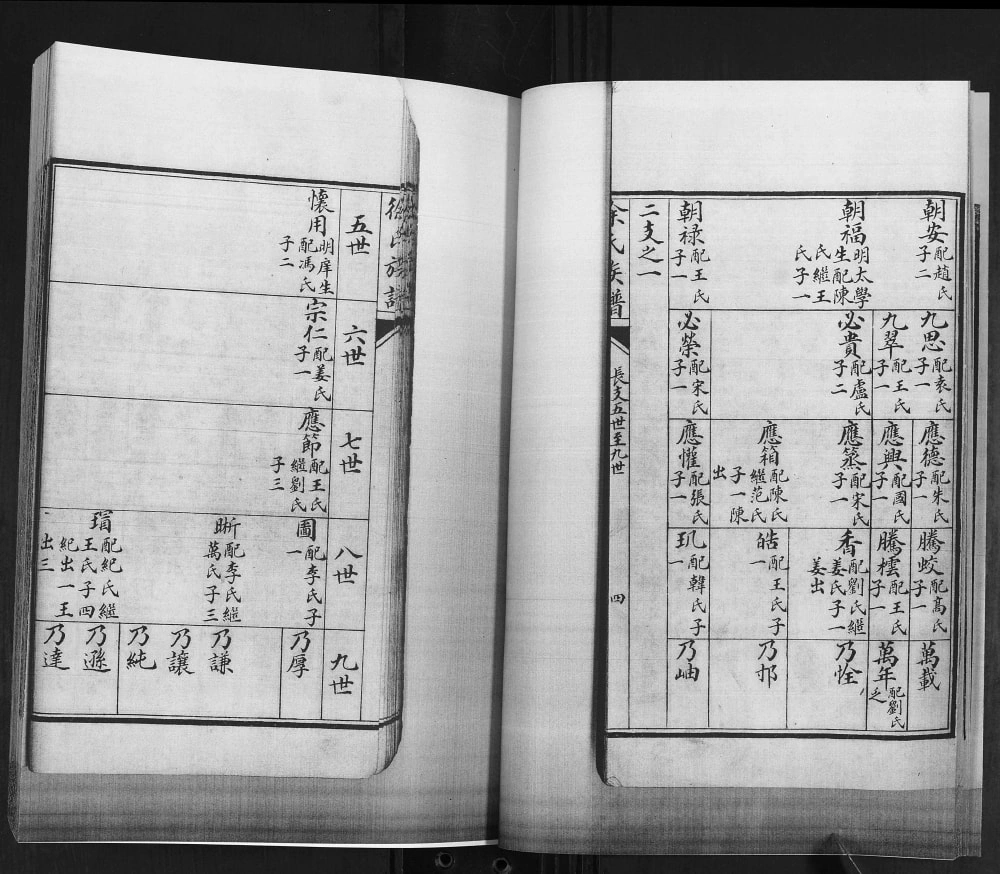 朝安 配趙氏 子二
朝福 明太學生 配陳氏 繼王氏 子一
朝禄 配王氏 子一
二支之一
九思 配袁氏 子一
九翠 配王氏 子一
必貴 配盧氏 子二
必榮 配宋氏 子一
應德 配朱氏 子一
應興 配國氏 子一
應 配宋氏 子一
應箱 配陳氏 繼范氏 子一 陳出
應懼 配張氏 子一
騰蛟 配高氏 子一
騰橒 配王氏 子一
香 配劉氏 繼姜氏 子一 姜出
皓 配王氏 子一
玑 配韓氏 子一
萬載
萬年 配劉氏 乏
乃恮
乃邧
乃岫
徐氏族譜
長支五世至九世
四
徐氏族譜
五世
懷用 明庠生 配馮氏 子二
六世
宗仁 配姜氏 子一
七世
應節 配王氏 繼劉氏 子三
八世
圖 配李氏 子一
晰 配李氏 繼萬氏 子三
瑁 配紀氏 繼王氏 子四 紀出一 王出三
九世
乃厚
乃謙
乃讓
乃純
乃遜
乃達